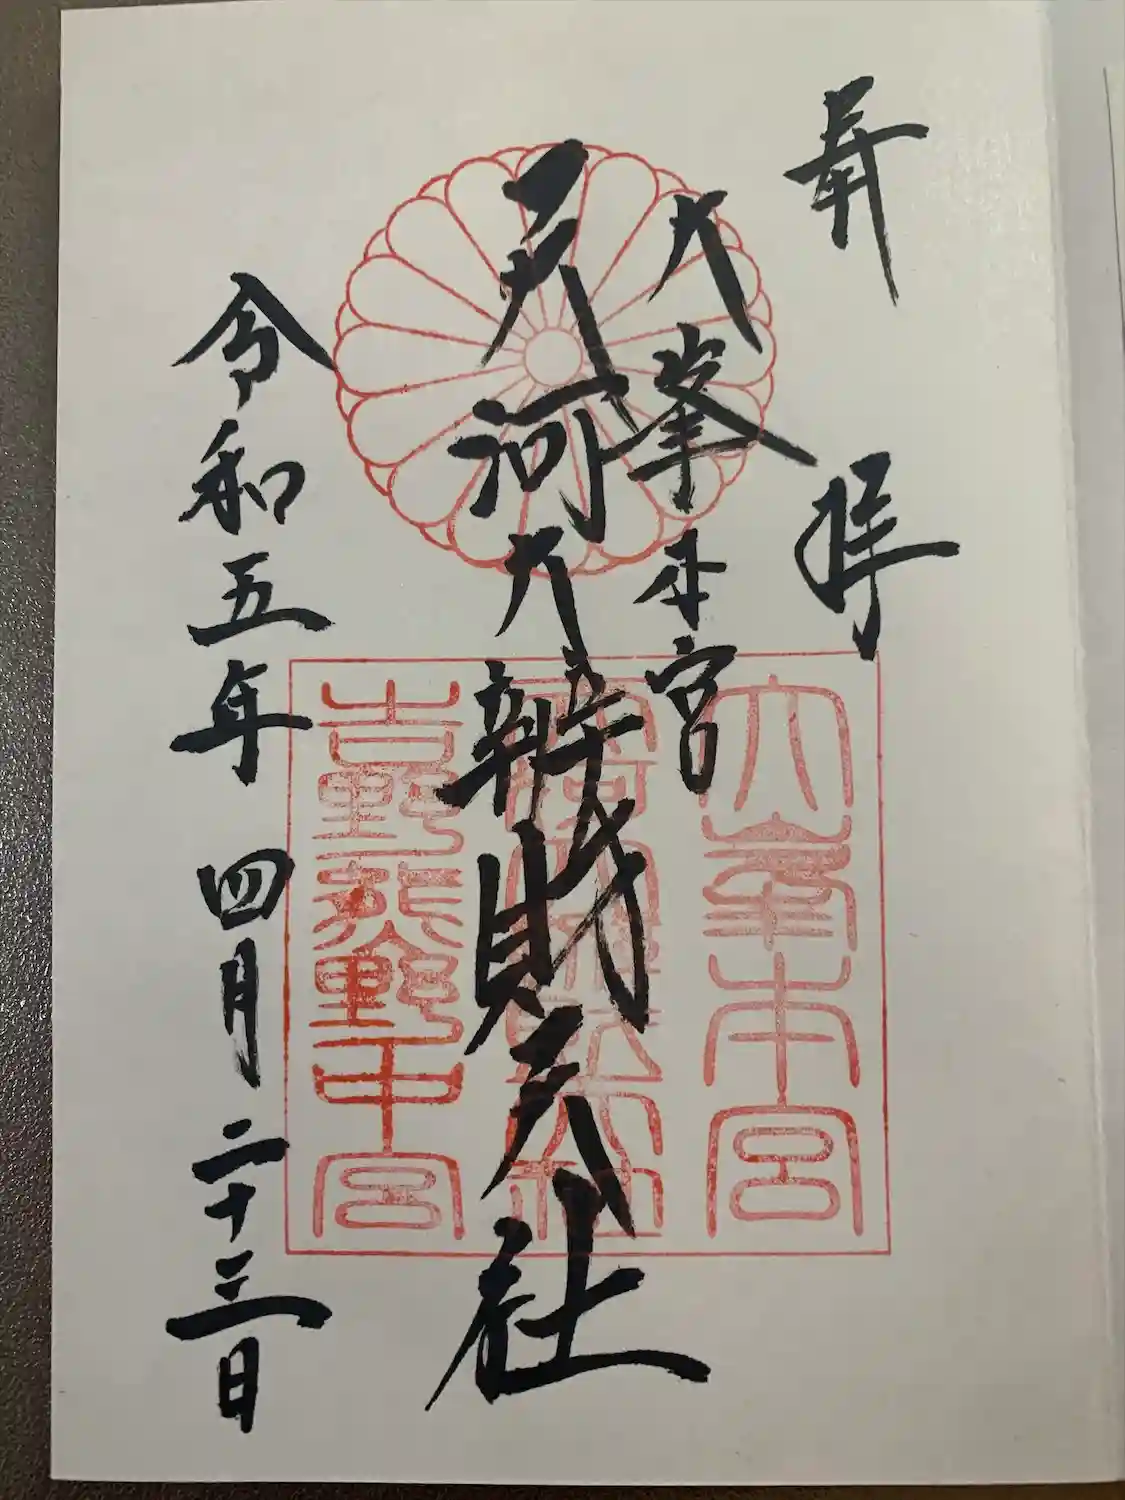 奉拝
大峯本宮
天河大辨財天社
令和五年四月二十三日
大峯本宮
吉野熊野中宮